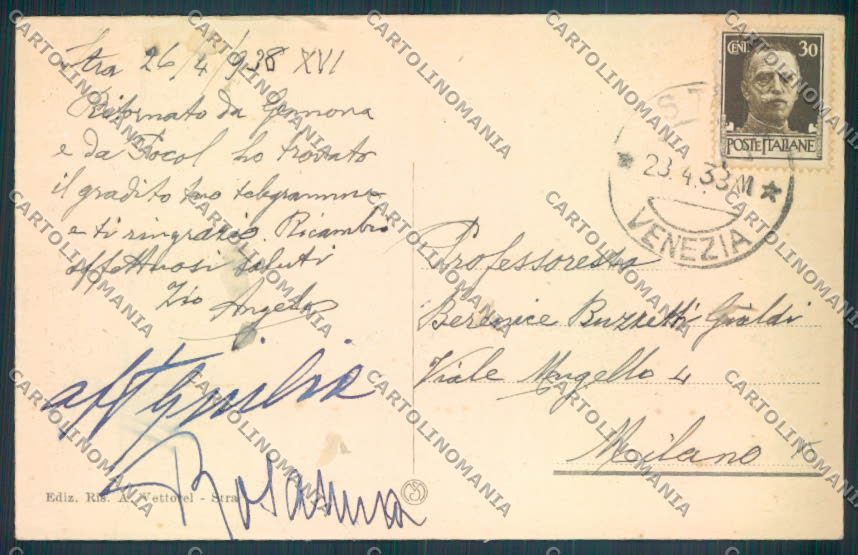 Stra 26/4/938 XVI
Ritornato da Gemona
e da Focol ho trovato
il gradito tuo telegramma
e ti ringrazio. Ricambio
affettuosi saluti
Zio Angelo
aff Giulia
Rosanna
Ediz. Ris. A. Vettorel - Stra
CENT. 30
POSTE ITALIANE
ST
VENEZIA
Professoressa
Berenice Buzzetti Gialdi
Viale Mugello 4
Milano
CARTOLINOMANIA